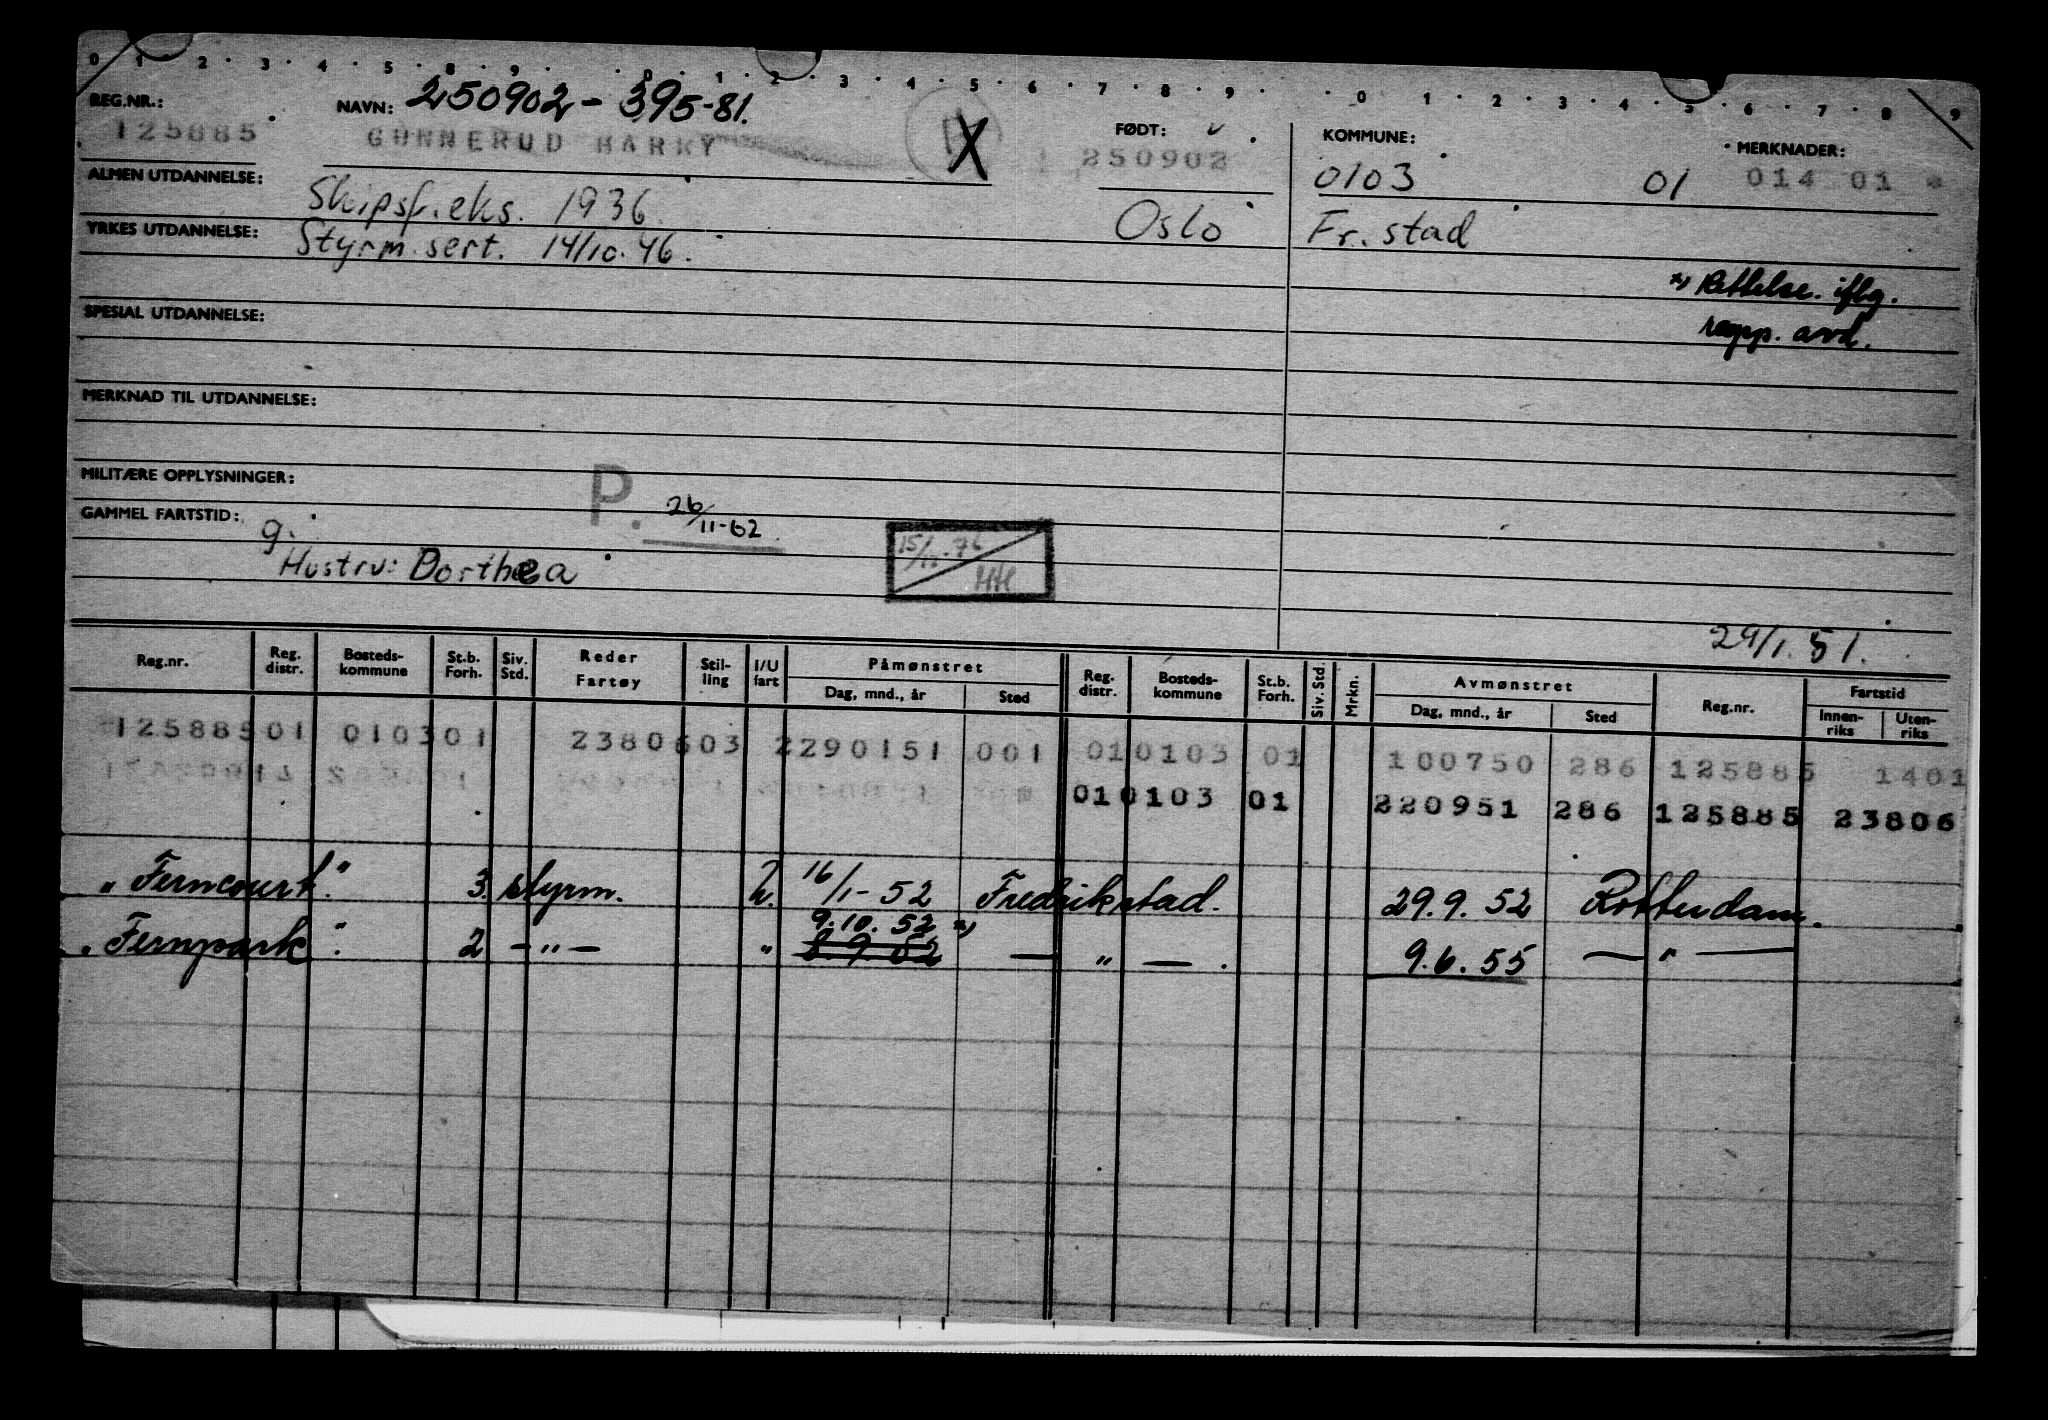 0 1 2 3 4 5 8 9 0 1 2 3 4 5 6 7 8 9 0 1 2 3 4 5 6 7 8 9
REG.NR.: NAVN: 250902 - 395-81. FØDT: KOMMUNE: MERKNADER:
125885 GUNNERUD HARRY X 250902 0103 01 014 01 *
ALMEN UTDANNELSE: Skipsf.eks. 1936 Oslo Fr.stad
YRKES UTDANNELSE: Styrm.sert. 14/10.46.
*) Rettelse. iflg.
rapp. avd.
SPESIAL UTDANNELSE:
MERKNAD TIL UTDANNELSE:
MILITÆRE OPPLYSNINGER: P. 26/11-62
GAMMEL FARTSTID: g.
Hustru: Dorthea 15/11.76 HH
29/1.51.
Reg.nr. Reg. distr. Bosteds-kommune St.b. Forh. Siv. Std. Reder Fartøy Stil-ling I/U fart Påmønstret Dag, mnd., år Sted Reg. distr. Bosteds-kommune St.b. Forh. Siv. Std. Mrkn. Avmønstret Dag, mnd., år Sted Reg.nr. Fartstid Innen-riks Uten-riks
12588501 010301 2380603 2290151 001 010103 01 100750 286 125885 1401
010103 01 220951 286 125885 23806
"Ferncourt" 3. styrm. U. 16/1-52 Fredrikstad. 29.9.52 Rotterdam.
9.10.52 *)
"Fernpark" 2 - " - " 8 9 52 — " — . 9.6.55 — " —